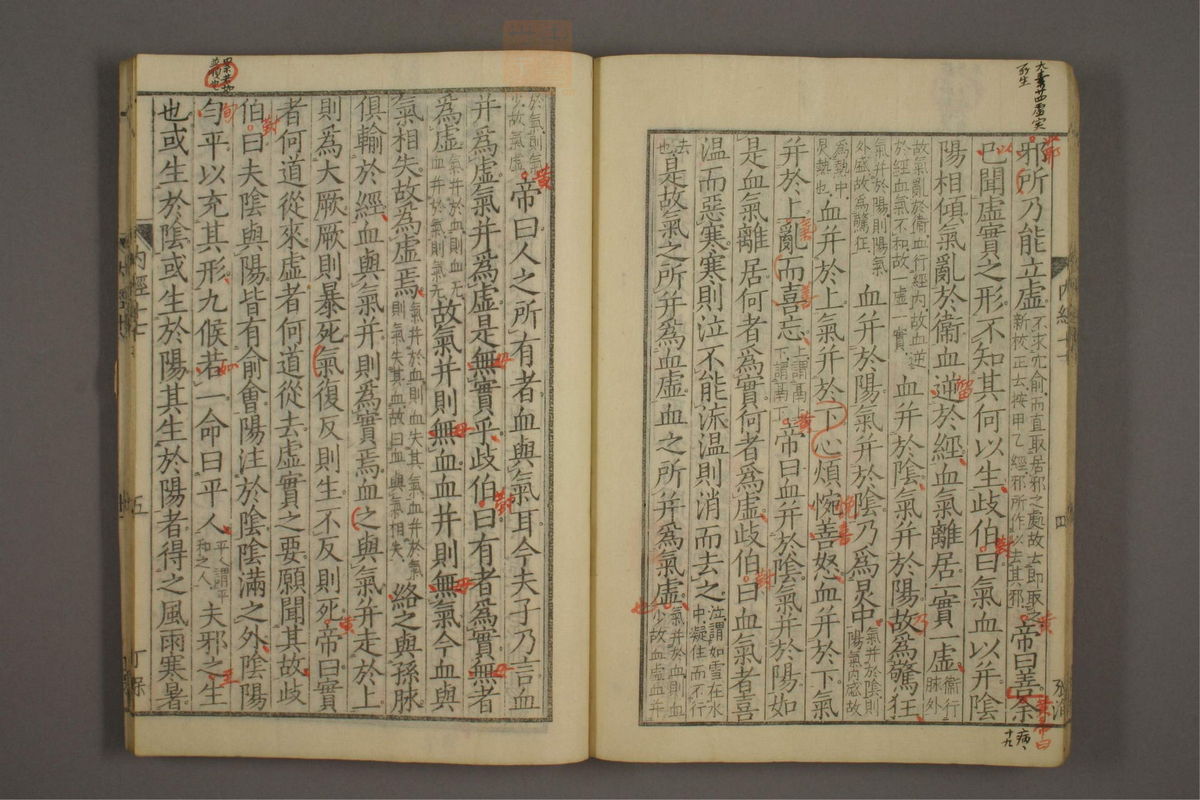 大素廿四虛実
所生
邪所乃能立虛不求穴俞而直取居邪之處故云即取之新校正云按甲乙經邪所作以去其邪帝曰善余
已聞虛實之形不知其何以生歧伯曰氣血以并陰
陽相傾氣亂於衞血逆於經血氣離居一實一虛衞行脉外
故氣亂於衞血行經內故血逆於經血氣不和故一虛一實血并於陰氣并於陽故爲驚狂
氣并於陽則陽氣外盛故爲驚狂血并於陽氣并於陰乃爲炅中氣并於陰則陽氣內盛故
爲熱中炅熱也血并於上氣并於下心煩惋善怒血并於下氣
并於上亂而喜忘上謂鬲上下謂鬲下帝曰血并於陰氣并於陽如
是血氣離居何者爲實何者爲虛歧伯曰血氣者喜
溫而惡寒寒則泣不能流溫則消而去之泣謂如雪在水中凝住而不行
去也是故氣之所并爲血虛血之所并爲氣虛氣并於血則血少故血虛血并
於氣則氣少故氣虛帝曰人之所有者血與氣耳今夫子乃言血
并爲虛氣并爲虛是無實乎歧伯曰有者爲實無者
爲虛氣并於血則血无血并於氣則氣无故氣并則無血血并則無氣今血與
氣相失故爲虛焉氣并於血則血失其氣血并於氣則氣失其血故曰血與氣相失絡之與孫脉
俱輸於經血與氣并則爲實焉血之與氣并走於上
則爲大厥厥則暴死氣復反則生不反則死帝曰實
者何道從來虛者何道從去虛實之要願聞其故歧
伯曰夫陰與陽皆有俞會陽注於陰陰滿之外陰陽
勻平以充其形九候若一命曰平人平謂平和之人夫邪之生
也或生於陰或生於陽其生於陽者得之風雨寒暑
內經十七 五